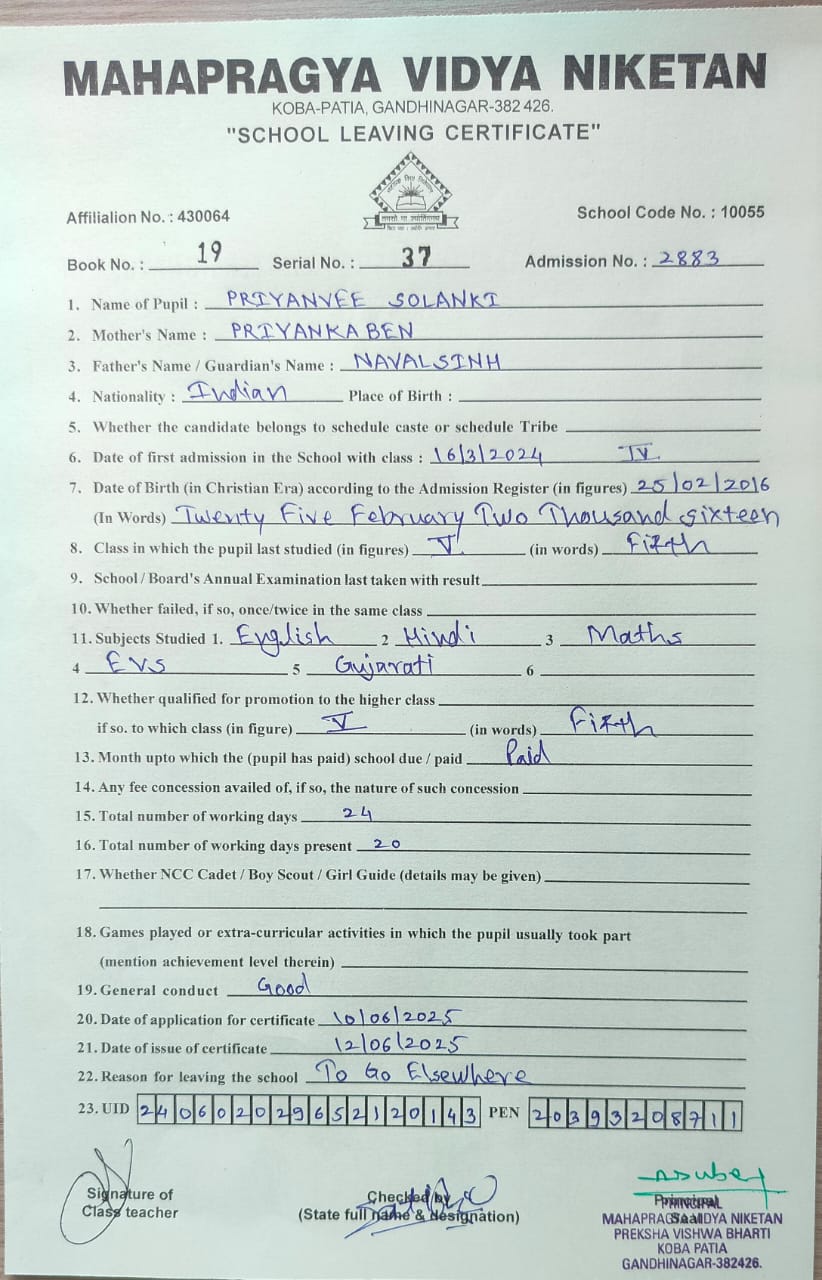 MAHAPRAGYA VIDYA NIKETAN
KOBA-PATIA, GANDHINAGAR-382 426.
"SCHOOL LEAVING CERTIFICATE"
तमसो मा ज्योतिर्गमय
Affilialion No. : 430064 School Code No. : 10055
Book No. : 19 Serial No. : 37 Admission No. : 2883
1. Name of Pupil : PRIYANVEE SOLANKI
2. Mother's Name : PRIYANKABEN
3. Father's Name / Guardian's Name : NAVALSINH
4. Nationality : Indian Place of Birth :
5. Whether the candidate belongs to schedule caste or schedule Tribe
6. Date of first admission in the School with class : 16/3/2024 IV
7. Date of Birth (in Christian Era) according to the Admission Register (in figures) 25/02/2016
(In Words) Twenty Five February Two Thousand sixteen
8. Class in which the pupil last studied (in figures) V (in words) Fifth
9. School / Board's Annual Examination last taken with result
10. Whether failed, if so, once/twice in the same class
11. Subjects Studied 1. English 2 Hindi 3 Maths
4 EVS 5 Gujarati 6
12. Whether qualified for promotion to the higher class
if so. to which class (in figure) V (in words) Fifth
13. Month upto which the (pupil has paid) school due / paid Paid
14. Any fee concession availed of, if so, the nature of such concession
15. Total number of working days 24
16. Total number of working days present 20
17. Whether NCC Cadet / Boy Scout / Girl Guide (details may be given)
18. Games played or extra-curricular activities in which the pupil usually took part
(mention achievement level therein)
19. General conduct Good
20. Date of application for certificate 10/06/2025
21. Date of issue of certificate 12/06/2025
22. Reason for leaving the school To Go Elsewhere
23. UID 240602029652120143 PEN 20393208711
Signature of Checked by Principal
Class teacher (State full name & designation) Seal
PRINCIPAL
MAHAPRAGYA VIDYA NIKETAN
PREKSHA VISHWA BHARTI
KOBA PATIA
GANDHINAGAR-382426.